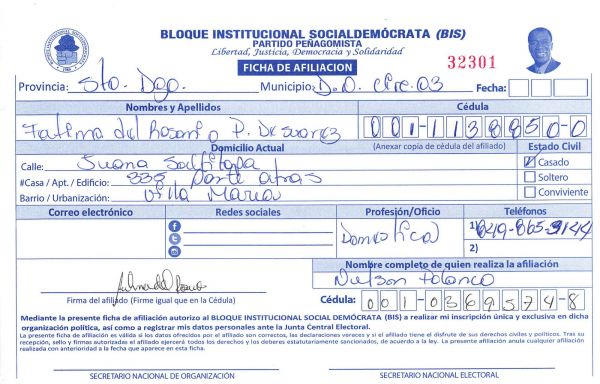 BLOQUE INSTITUCIONAL SOCIALDEMÓCRATA (BIS)
PARTIDO PEÑAGOMISTA
Libertad, Justicia, Democracia y Solidaridad
FICHA DE AFILIACION
32301
Provincia: Sto. Dgo. Municipio: D.O. circ. 03 Fecha:
Nombres y Apellidos Cédula
Fatima del Rosario P. De Suarez 001-1138850-0
(Anexar copia de cédula del afiliado)
Domicilio Actual Estado Civil
Calle: Juana Saltitopa Casado
#Casa / Apt. / Edificio: 338 parte atras Soltero
Barrio / Urbanización: Villa Maria Conviviente
Correo electrónico Redes sociales Profesión/Oficio Teléfonos
Domestica 1) 849-865-9144
2)
Nombre completo de quien realiza la afiliación
Nielson Polanco
Firma del afiliado (Firme igual que en la Cédula) Cédula: 001-0369574-8
Mediante la presente ficha de afiliado autorizo al BLOQUE INSTITUCIONAL SOCIAL DEMÓCRATA (BIS) a realizar mi inscripción única y exclusiva en dicha
organización política, así como a registrar mis datos personales ante la Junta Central Electoral.
La presente ficha de afiliado es válida si los datos ofrecidos por el afiliado son correctos, las declaraciones veraces y si el afiliado tiene el disfrute de sus derechos civiles y políticos. Tras su
recepción, sello y firmas autorizadas el afiliado ejercerá todos los derechos y los deberes estatutariamente sancionados, de acuerdo a la ley. La presente afiliación anula cualquier afiliación
realizada con anterioridad a la fecha que aparece en esta ficha.
SECRETARIO NACIONAL DE ORGANIZACIÓN SECRETARIO NACIONAL ELECTORAL